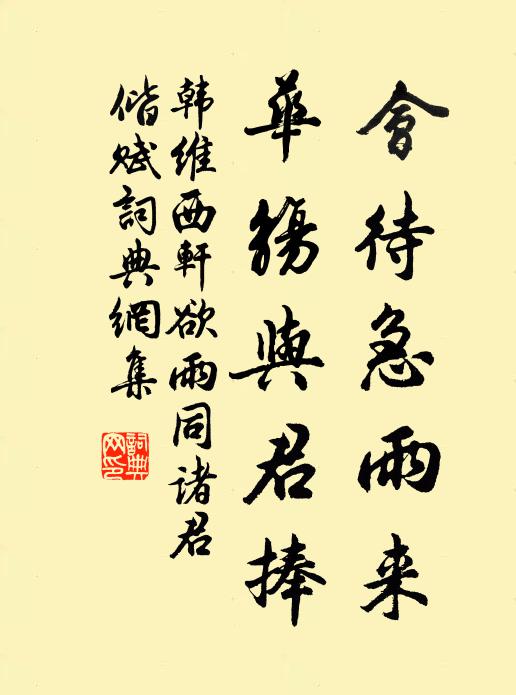 會待急雨来
華觴與君捧
韩維西軒欲雨同诸君
偕赋詞典網集
詞典网印